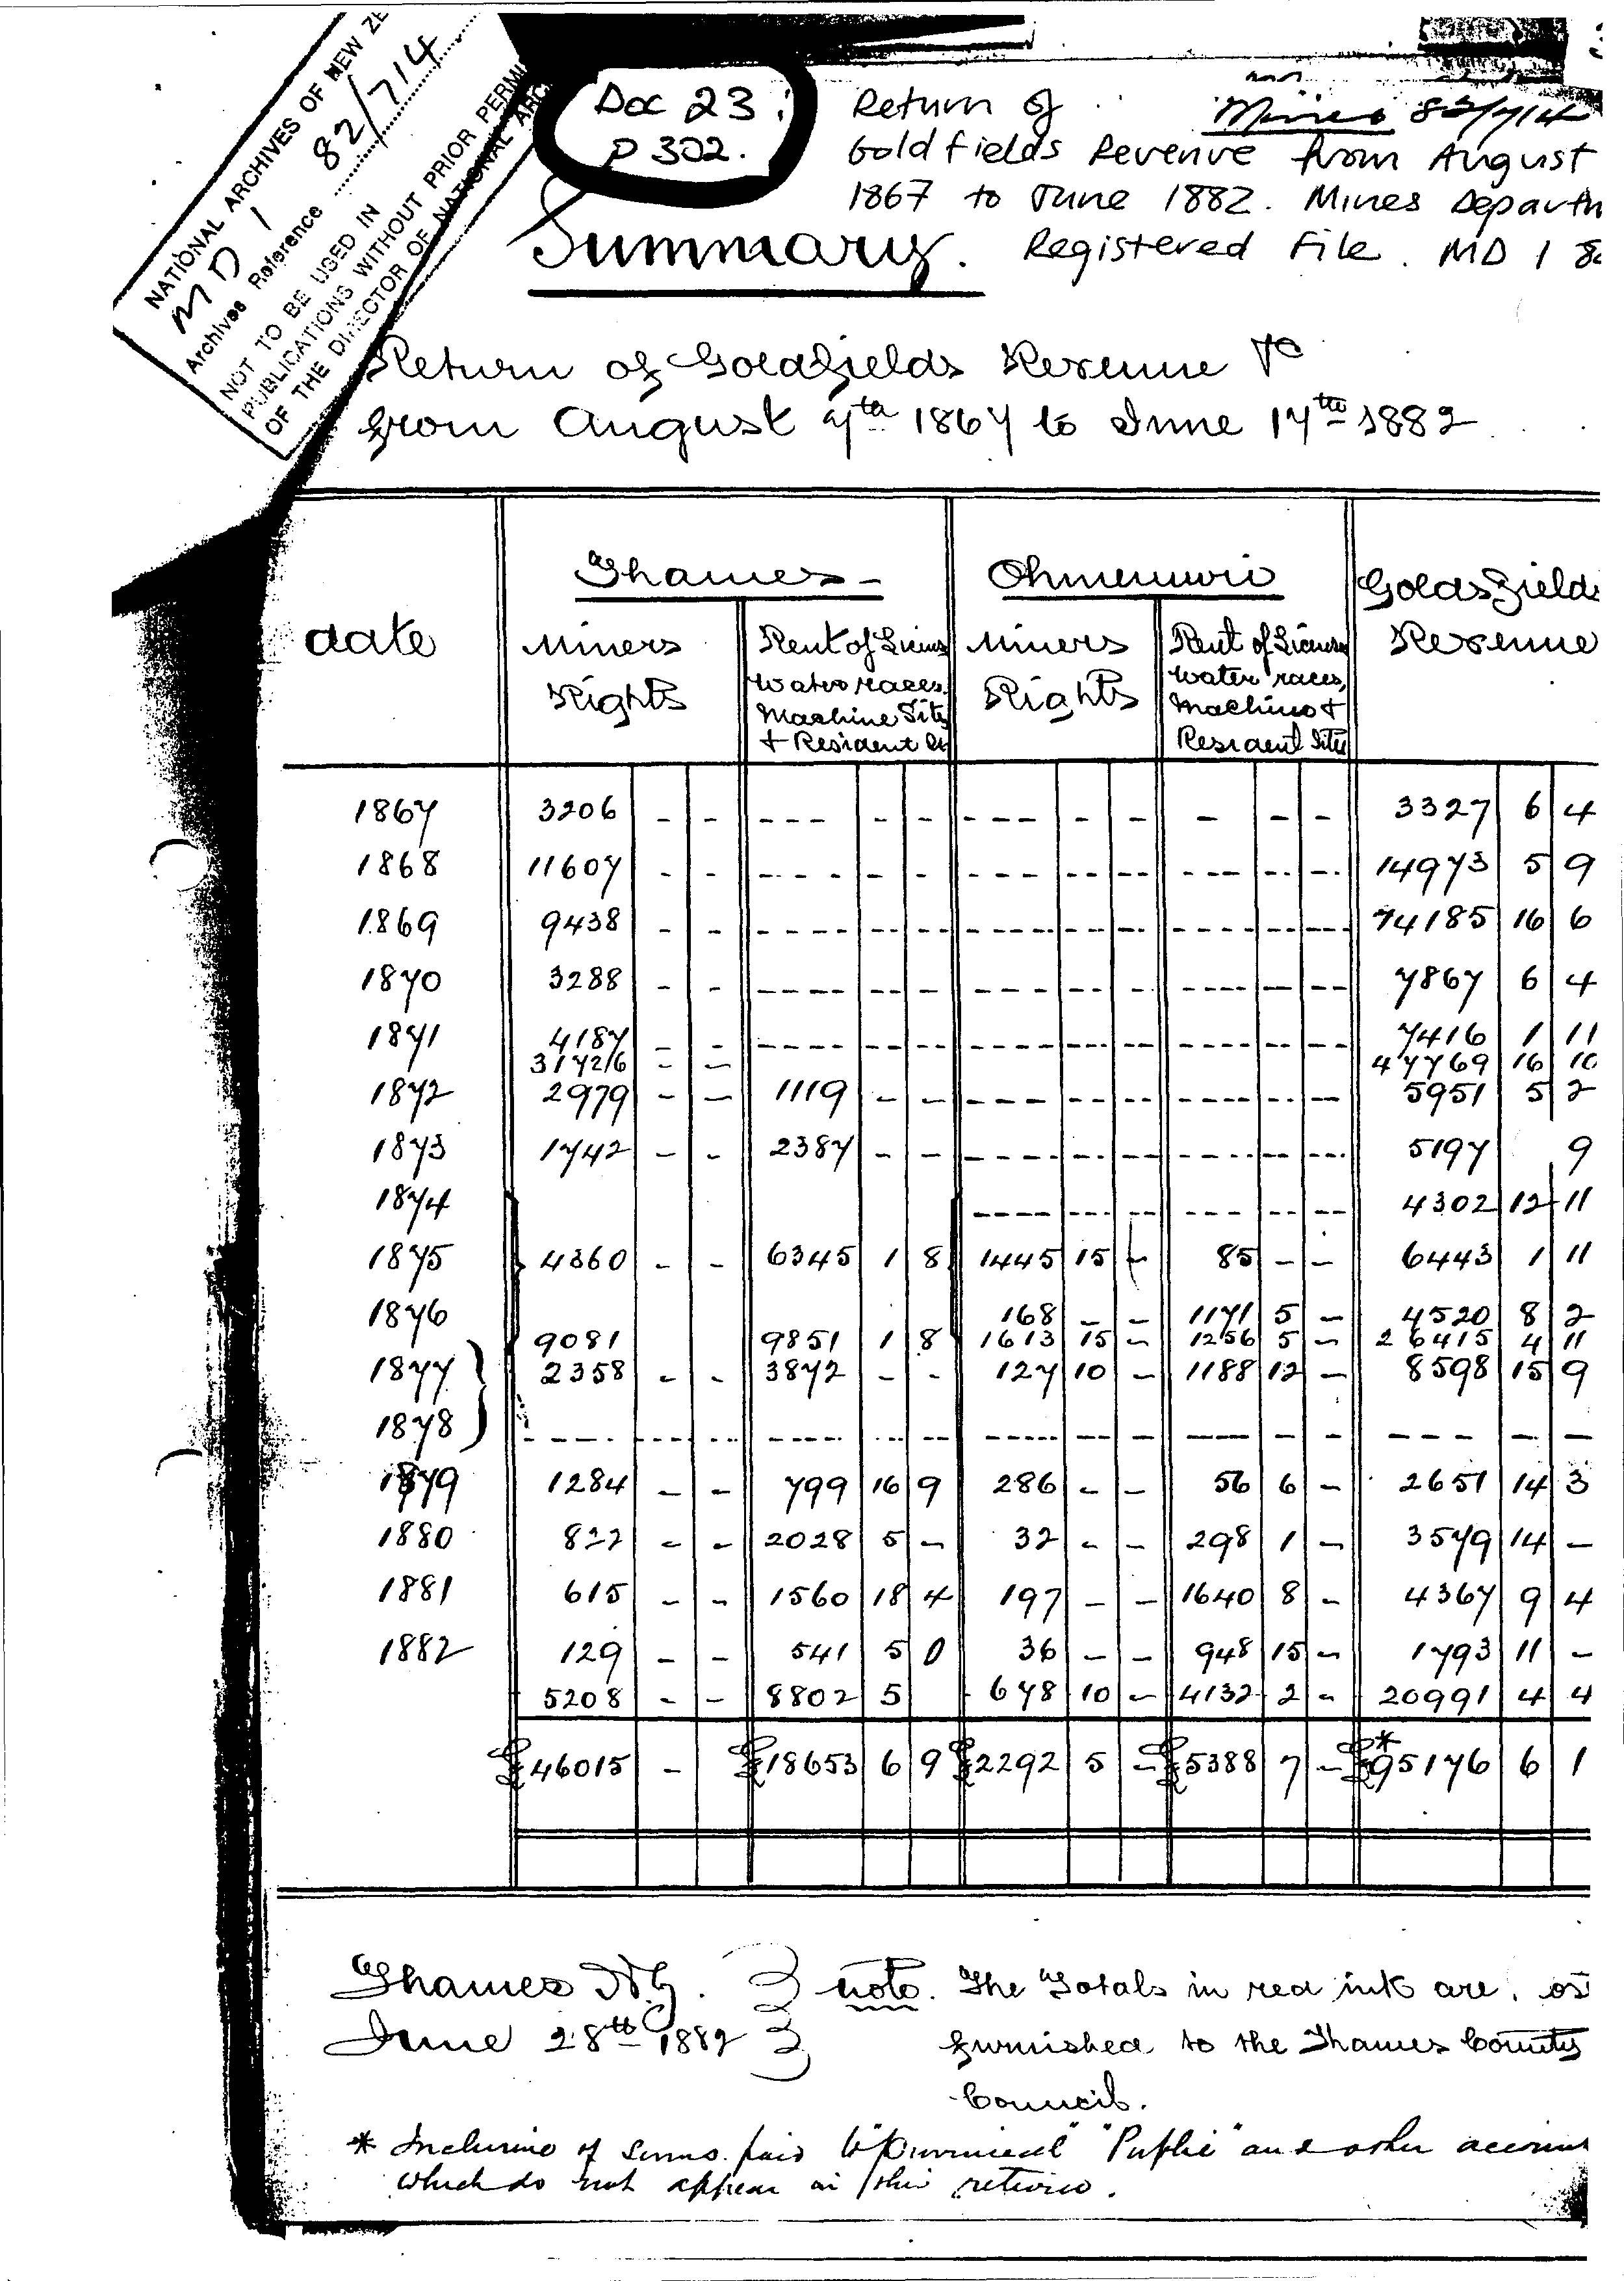 NATIONAL ARCHIVES OF NEW ZE
MD 1 82/714
Archives Reference
NOT TO BE USED IN
PUBLICATIONS WITHOUT PRIOR PERMI
OF THE DIRECTOR OF NATIONAL ARC
Doc 23:
P 302.
Mines 82/714
Return of
Goldfields Revenue from August
1867 to June 1882. Mines Departm
Registered File. MD 1 8
Summary.
Return of Goldfields Revenue &c
from August 7th 1867 to June 17th 1882
date
Thames
Ohinemuri
Goldsfields
Revenue
Miners Rights
Rent of Licens
Water races
Machine Site
+ Resident
Miners Rights
Rent of Licens
Water races,
Machine +
Resident Site
1867 3206 - - --- - - --- - - - - - 3327 6 4
1868 11607 - - ---- - - --- -- -- --- -- -- 14973 5 9
1869 9438 - - ----- -- -- ----- -- -- ---- -- --- 14185 16 6
1870 3288 - - ---- -- - --- - -- ---- -- -- 7867 6 4
1871 4187 - - ---- -- -- ---- -- -- ---- -- -- 7416 1 11
31726 - - 47769 16 10
1872 2979 - - 1119 - - ---- -- -- ---- -- -- 5951 5 2
1873 1742 - - 2387 - - ---- -- -- ---- -- --- 5197 9
1874 ---- --- -- --- -- -- 4302 12 11
1875 4360 - - 6345 1 8 1445 15 - 85 - - 6443 1 11
1876 168 - - 1171 5 - 4520 8 2
9081 9851 1 8 1613 15 - 1256 5 - 26415 4 11
1877 2358 - - 3872 - - 127 10 - 1188 12 - 8598 15 9
1878 ---- --- -- ---- -- -- ---- - - --- - - --- - -
1879 1284 - - 799 16 9 286 - - 56 6 - 2651 14 3
1880 822 - - 2028 5 - 32 - - 298 1 - 3579 14 -
1881 615 - - 1560 18 4 197 - - 1640 8 - 4367 9 4
1882 129 - - 541 5 0 36 - - 948 15 - 1793 11 -
5208 - - 8802 5 678 10 - 4132 2 - 20991 4 4
£46015 - £18653 6 9 £2292 5 - £5388 7 - £*95176 6 1
Thames N.Z.
June 28th 1882
note. The Totals in red ink are, as
furnished to the Thames County
Council.
* Inclusive of sums paid to "Provincial" "Public" and other accoun
which do not appear in this return.